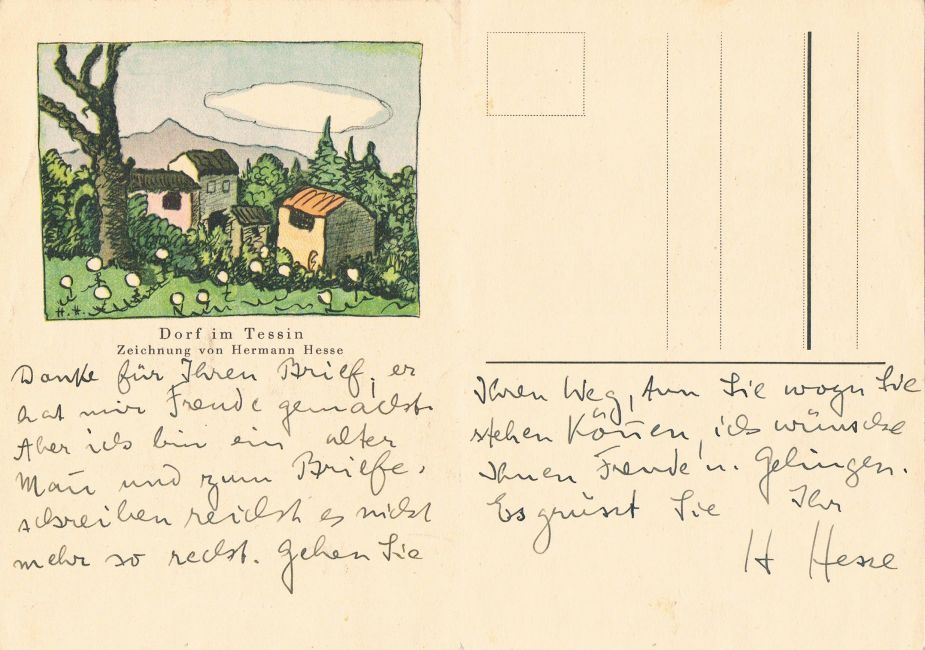 H. H.
Dorf im Tessin
Zeichnung von Hermann Hesse
Danke für Ihren Brief, er
hat mir Freude gemacht.
Aber ich bin ein alter
Mañ und zum Briefe-
schreiben reicht es nicht
mehr so recht. Gehen Sie
Ihren Weg, tun Sie wozu Sie
stehen Köñen, ich wünsche
Ihnen Freude u. Gelingen.
Es grüsst Sie Ihr
H Hesse